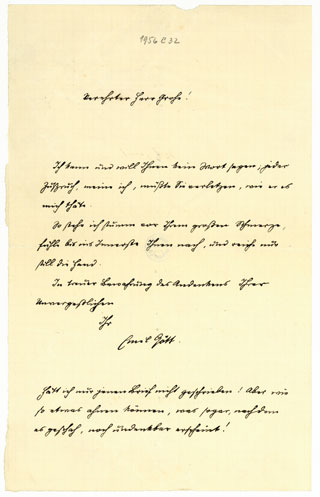 1956 C 32
Verehrter Herr Grohe!
Ich kann und will Ihnen kein Wort sagen, jeder
Zuspruch, meine ich, müßte Sie verletzen, wie er es
mich thäte.
So stehe ich stumm vor Ihrem großen Schmerze,
fühle bis ins Innerste Ihnen nach, und reiche nur
still die Hand.
In treuer Bewahrung des Andenkens Ihrer
Unvergeßlichen
Ihr
Emil Gött.
Hätt ich nur jenen Brief nicht geschrieben! Aber wie
so etwas ahnen können, was sogar, nachdem
es geschah, noch undenkbar erscheint!